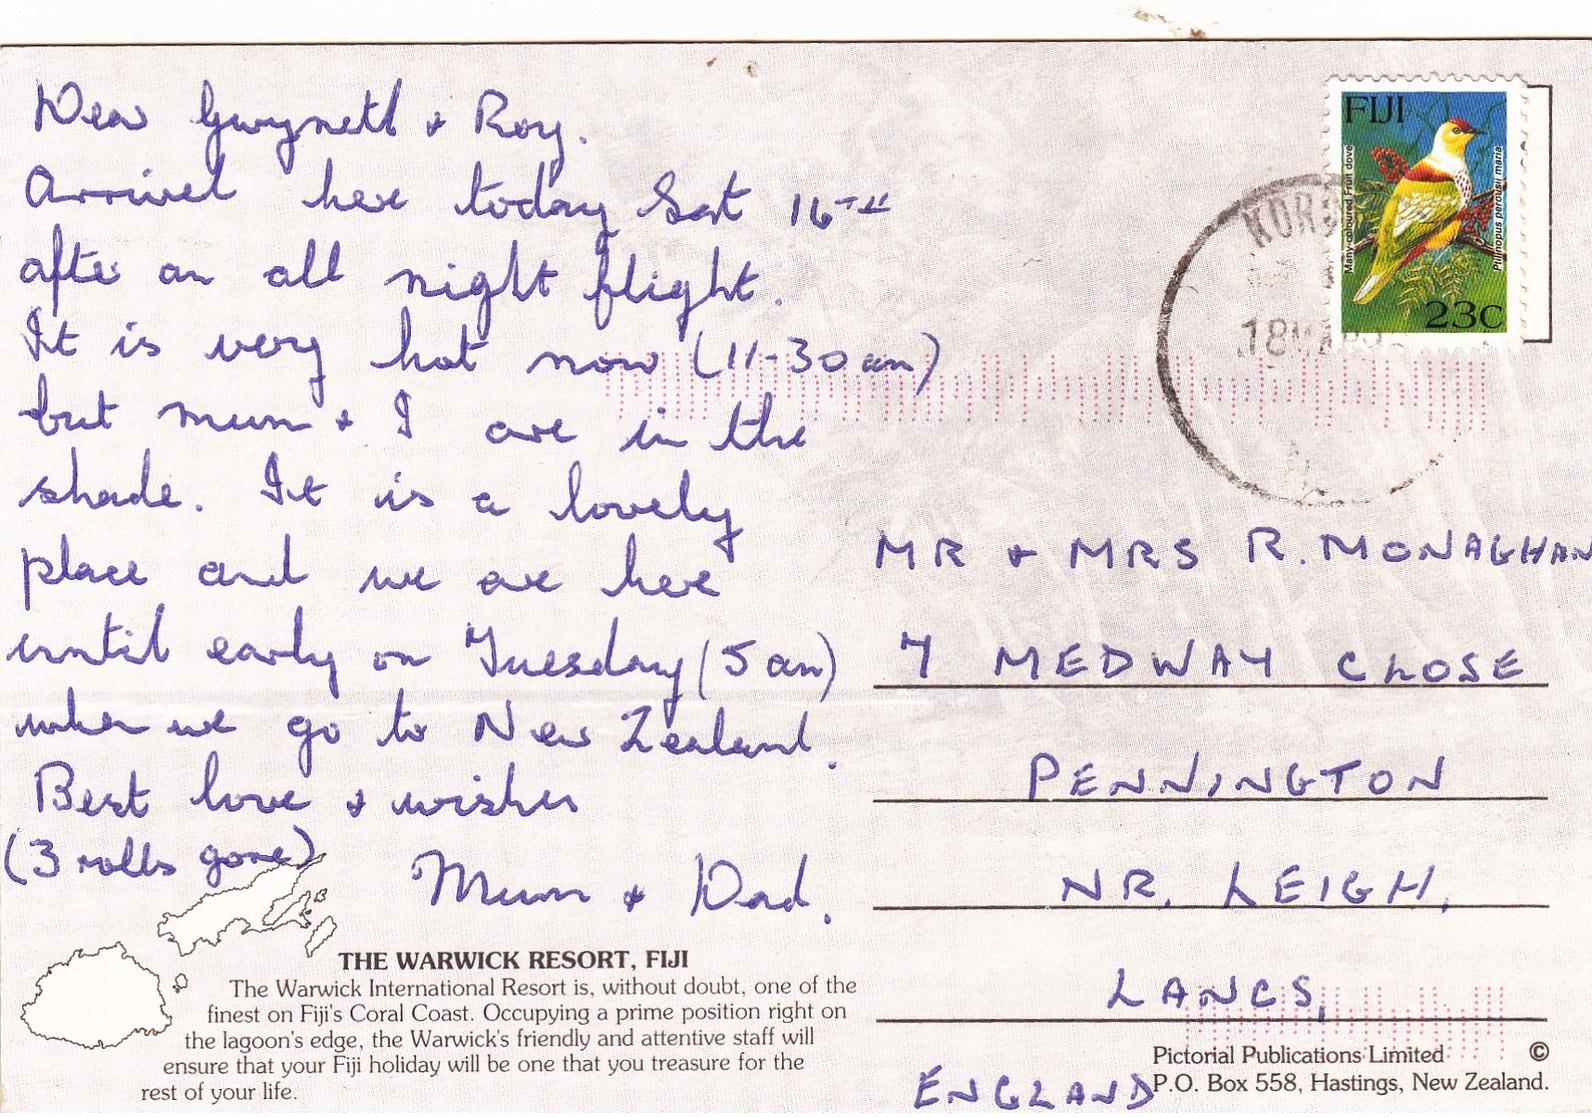 Dear Gwyneth & Roy.
Arrived here today Sat 16TH
after an all night flight.
It is very hot now (11-30 am)
but mum & I are in the
shade. It is a lovely
place and we are here
until early on Tuesday (5 am)
when we go to New Zealand.
Best love & wishes
(3 rolls gone)
Mum & Dad.
THE WARWICK RESORT, FIJI
The Warwick International Resort is, without doubt, one of the
finest on Fiji's Coral Coast. Occupying a prime position right on
the lagoon's edge, the Warwick's friendly and attentive staff will
ensure that your Fiji holiday will be one that you treasure for the
rest of your life.
FIJI
Many-coloured Fruit dove
Ptilinopus perousii maria
23c
MR & MRS R. MONAGHAN
7 MEDWAY CLOSE
PENNINGTON
NR. LEIGH,
LANCS,
ENGLAND
Pictorial Publications Limited ©
P.O. Box 558, Hastings, New Zealand.